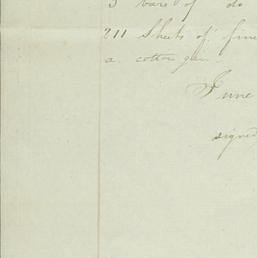 3 bars of do
211 Sheets of fine
a cotton gin.
June
signed